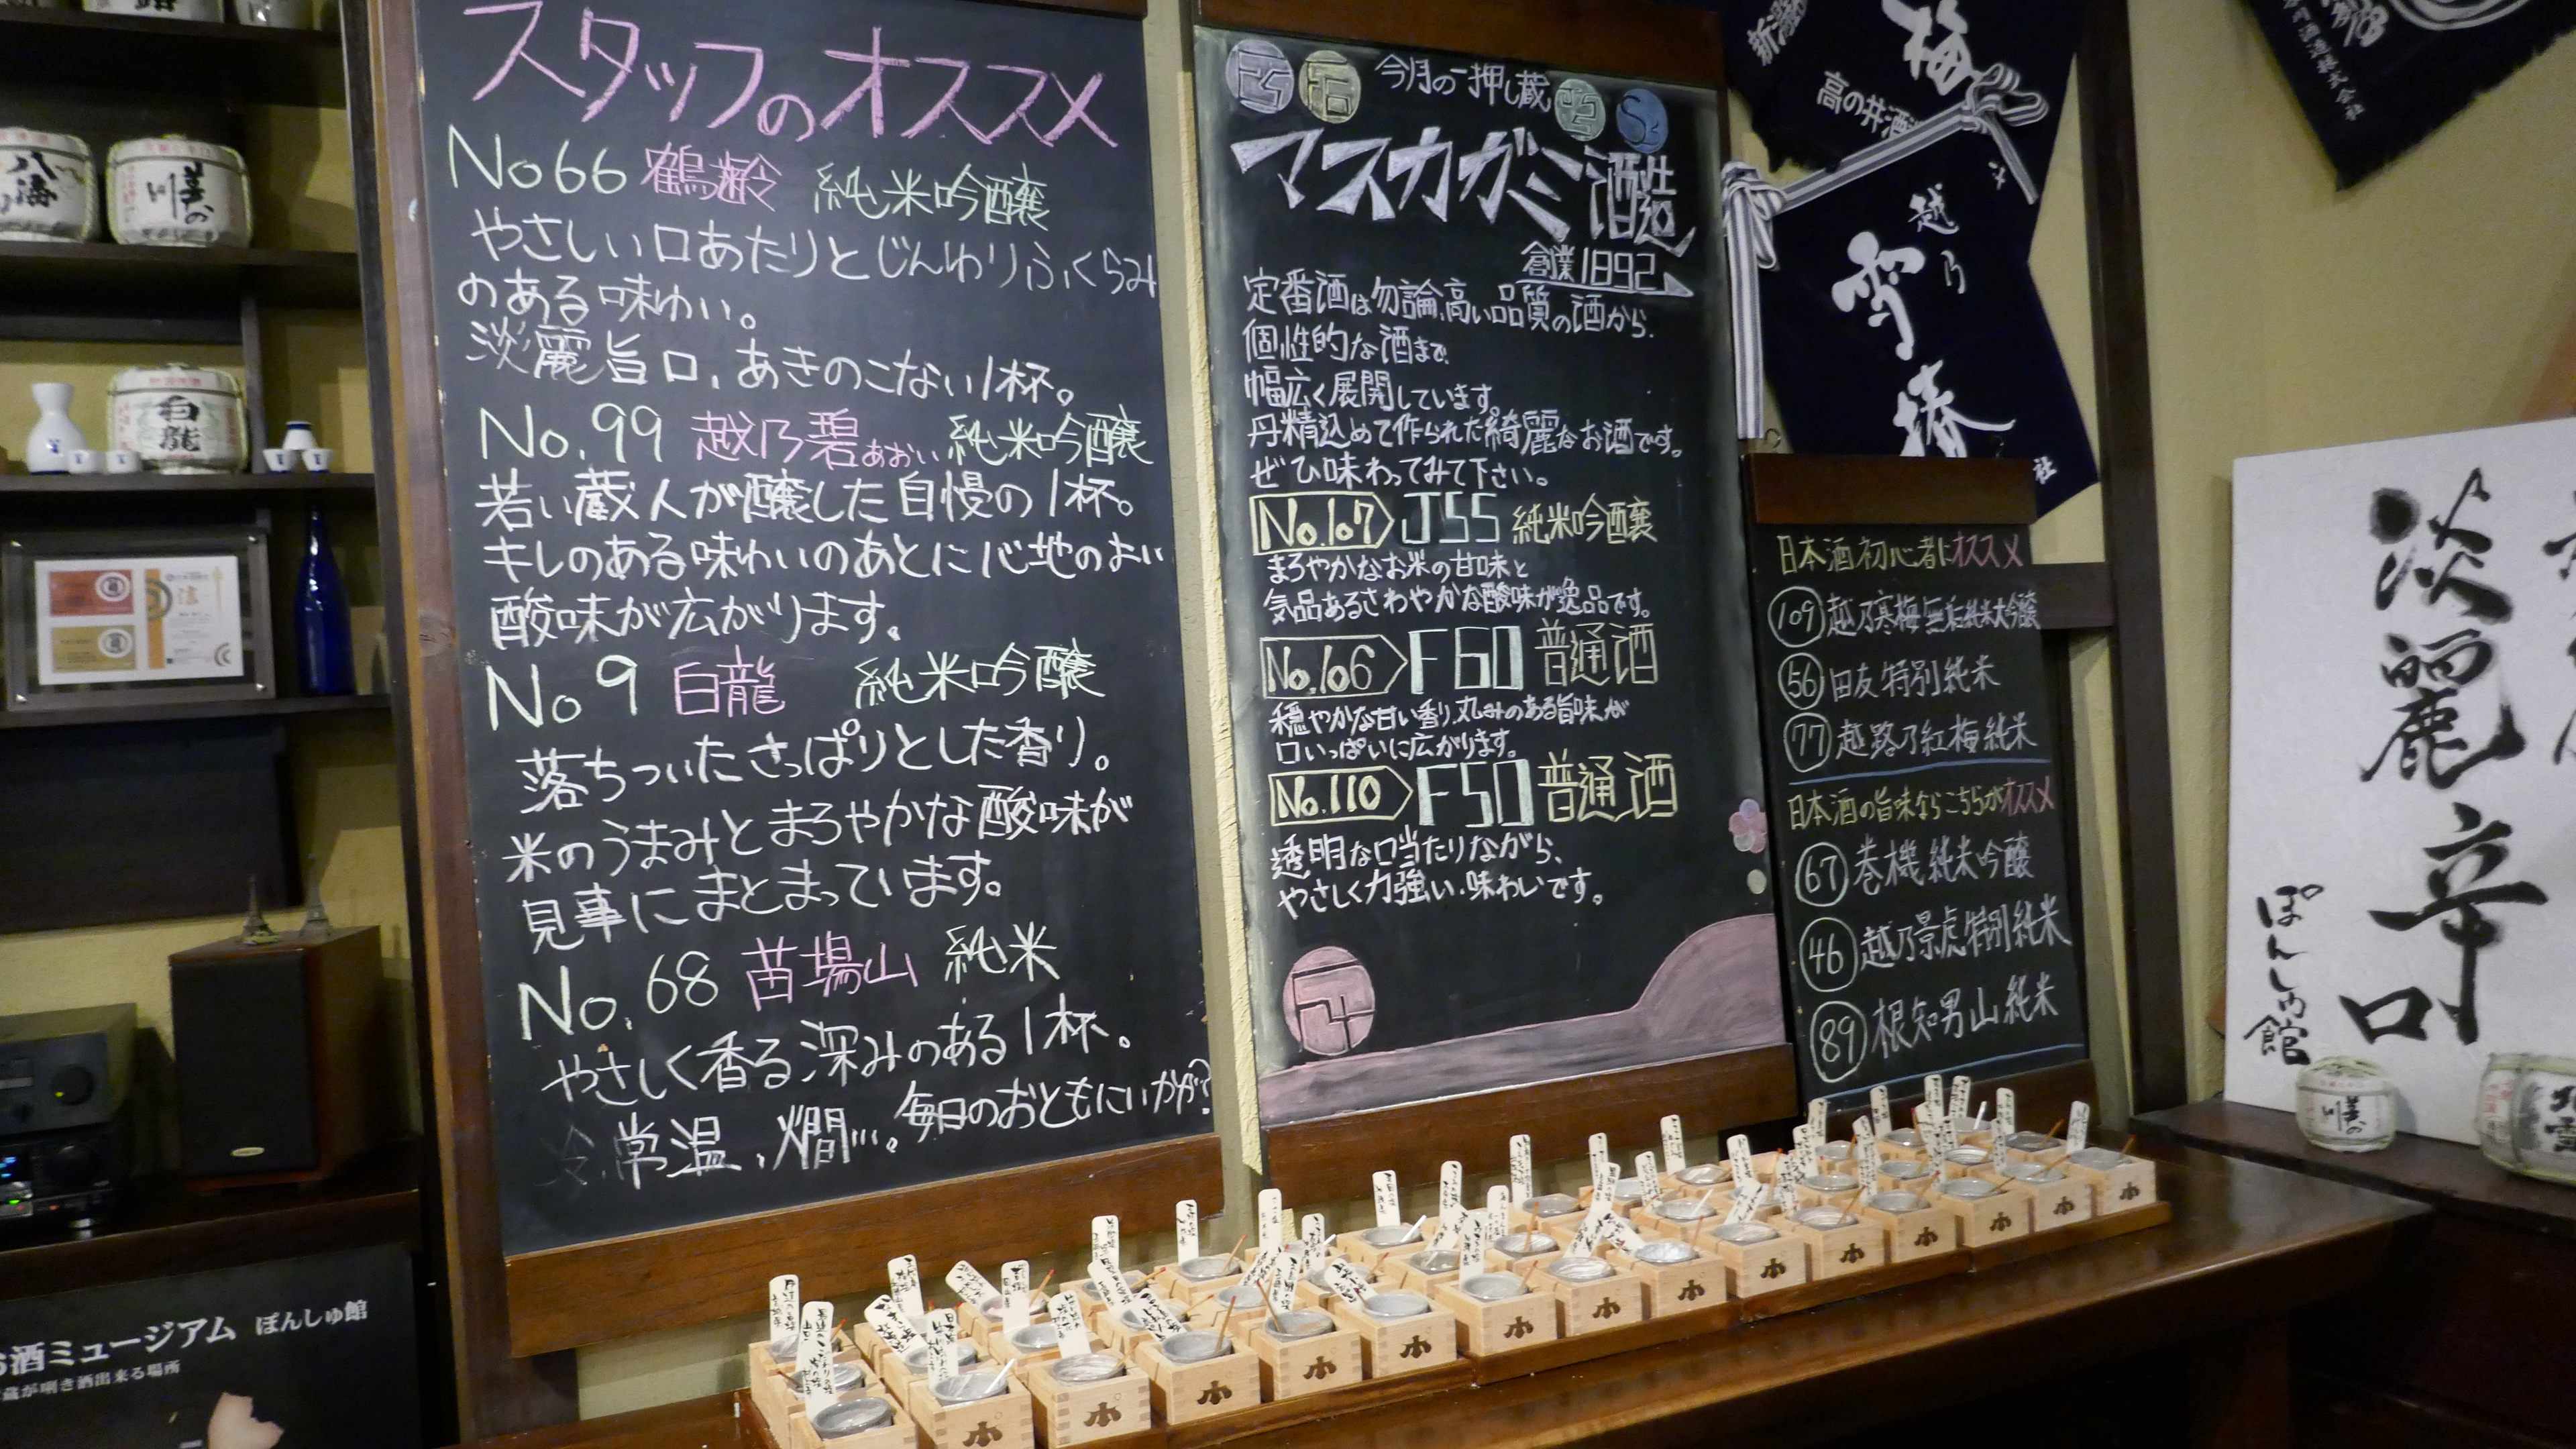 スタッフのオススメ
No66 鶴齢 純米吟醸
やさしい口あたりとじんわりふくらみ
のある味わい。
淡麗旨口、あきのこない1杯。
No.99 越乃碧あおい 純米吟醸
若い蔵人が醸した自慢の1杯。
キレのある味わいのあとに心地のよい
酸味が広がります。
No9 白龍 純米吟醸
落ちついたさっぱりとした香り。
米のうまみとまろやかな酸味が
見事にまとまっています。
No.68 苗場山 純米
やさしく香る深みのある1杯。
冷、常温、燗…。毎日のおともにいかが?
今月の一押し蔵
マスカガミ酒造
創業1892
定番酒は勿論、高い品質の酒から、
個性的な酒まで、
幅広く展開しています。
丹精込めて作られた綺麗なお酒です。
ぜひ味わってみて下さい。
No.107 J55 純米吟醸
まろやかなお米の甘味と
気品あるさわやかな酸味が逸品です。
No.106 F60 普通酒
穏やかな甘い香り、丸みのある旨味が
口いっぱいに広がります。
No.110 F50 普通酒
透明な口当たりながら、
やさしく力強い味わいです。
日本酒初心者にオススメ
109 越乃寒梅 無垢 純米大吟醸
56 田友 特別純米
77 越路乃紅梅 純米
日本酒の旨味ならこちらがオススメ
67 巻機 純米吟醸
46 越乃景虎 特別純米
89 根知男山 純米
新潟
梅
高の井酒造
越乃
雪椿
社
株式会社
淡麗辛口
ぽんしゅ館
八海
美の川
白龍
美の川
北雪
酒ミュージアム ぽんしゅ館
蔵が唎き酒出来る場所